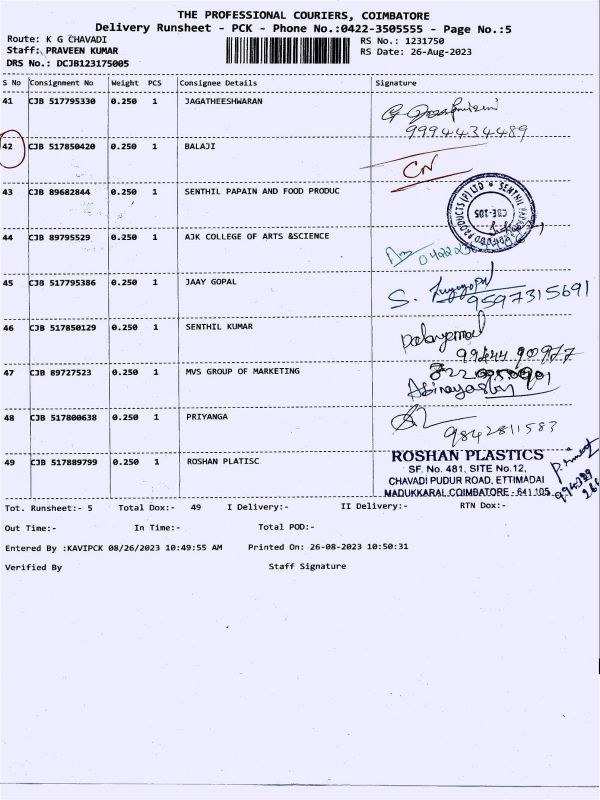 THE PROFESSIONAL COURIERS, COIMBATORE
Delivery Runsheet - PCK - Phone No.:0422-3505555 - Page No.:5
Route: K G CHAVADI
RS No.: 1231750
Staff: PRAVEEN KUMAR
RS Date: 26-Aug-2023
DRS No.: DCJB123175005
S No Consignment No Weight PCS Consignee Details Signature
41 CJB 517795330 0.250 1 JAGATHEESHWARAN
9994434489
42 CJB 517850420 0.250 1 BALAJI CN
43 CJB 89682844 0.250 1 SENTHIL PAPAIN AND FOOD PRODUC
SENTHIL PRODUCTS (P) LTD CBE-105
44 CJB 89795529 0.250 1 AJK COLLEGE OF ARTS &SCIENCE
45 CJB 517795386 0.250 1 JAAY GOPAL S.
9597315691
46 CJB 517850129 0.250 1 SENTHIL KUMAR
99444 90977
47 CJB 89727523 0.250 1 MVS GROUP OF MARKETING
48 CJB 517800638 0.250 1 PRIYANGA
9842811583
49 CJB 517889799 0.250 1 ROSHAN PLATISC ROSHAN PLASTICS
SF. No. 481, SITE No.12,
CHAVADI PUDUR ROAD, ETTIMADAI
MADUKKARAI, COIMBATORE - 641 105
Tot. Runsheet:- 5 Total Dox:- 49 I Delivery:- II Delivery:- RTN Dox:-
Out Time:- In Time:- Total POD:-
Entered By :KAVIPCK 08/26/2023 10:49:55 AM Printed On: 26-08-2023 10:50:31
Verified By Staff Signature